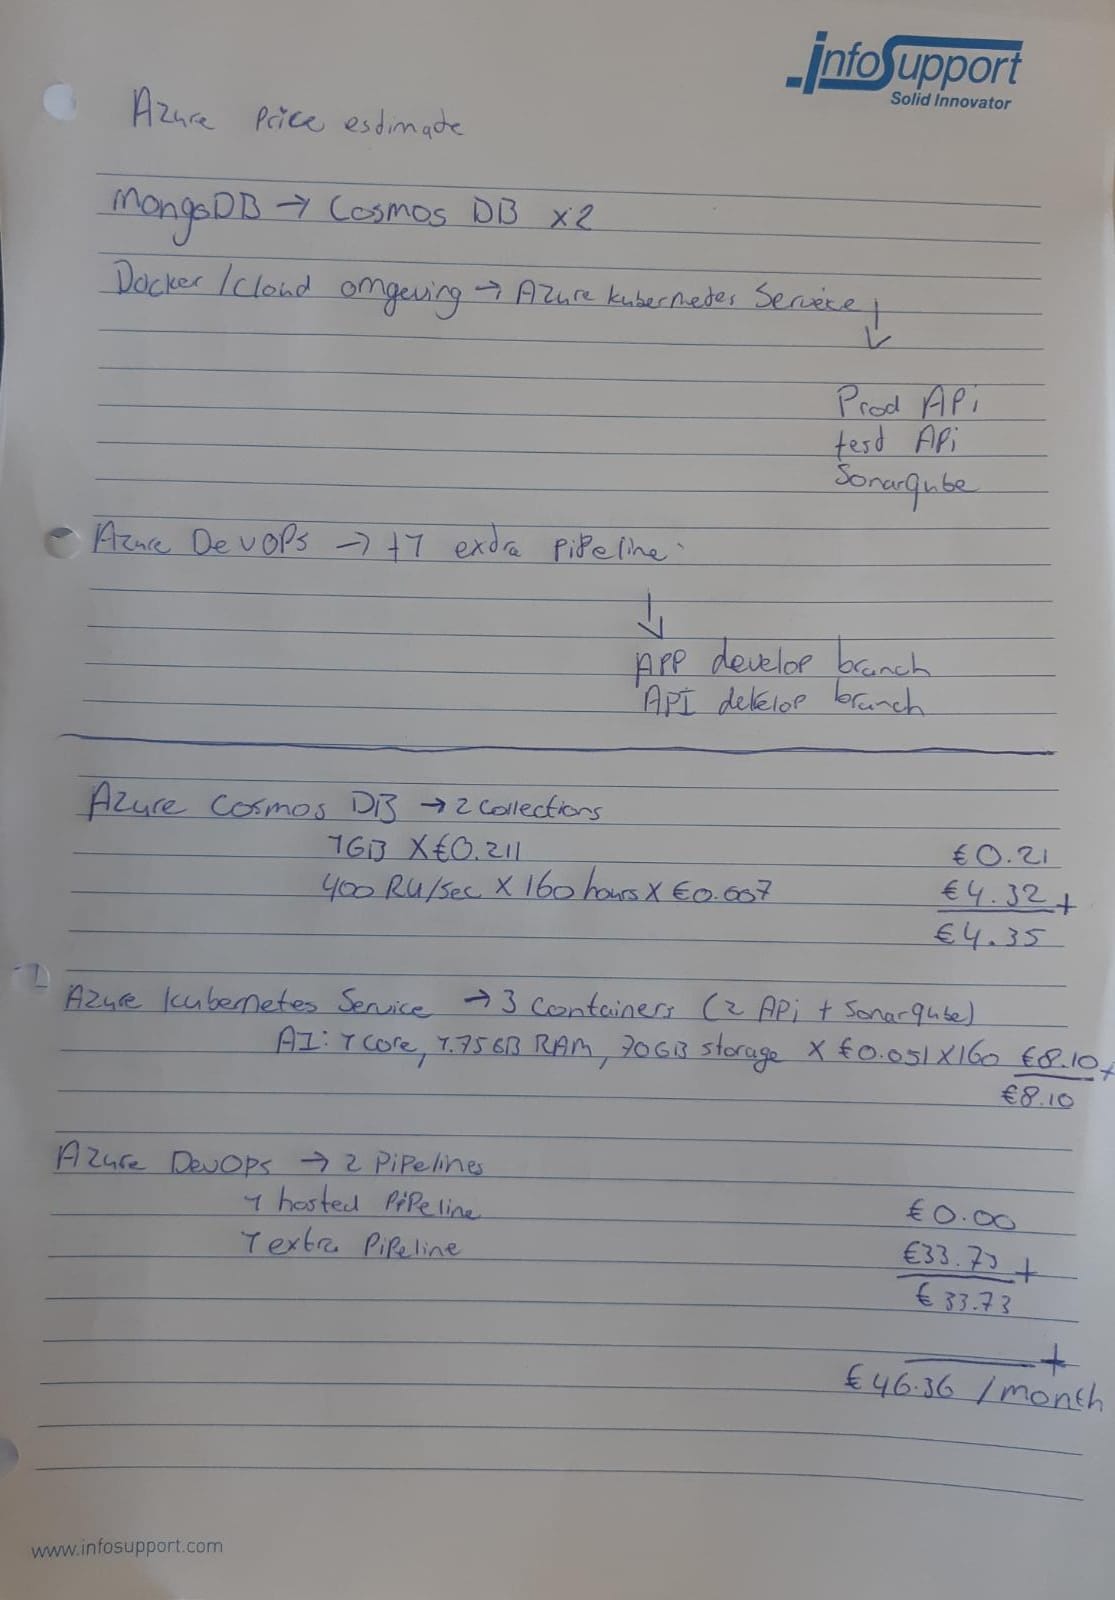 infoSupport
Solid Innovator
Azure Price esdimate
MongoDB → Cosmos DB x2
Docker /cloud omgeving → Azure kubernetes Service
↓
Prod APi
test APi
Sonarqube
Azure DevOPs → +1 extra pipeline
↓
APP develop branch
API develop branch
Azure Cosmos DB → 2 collections
1GB X €0.211 €0.21
400 RU/sec X 160 hours X €0.007 €4.32 +
€4.35
Azure kubernetes Service → 3 containers (2 APi + Sonarqube)
A1: 1 core, 1.75GB RAM, 70GB storage X €0.051 X 160 €8.10 +
€8.10
Azure DevOps → 2 PiPelines
1 hosted PiPeline €0.00
1 extra PiPeline €33.73 +
€33.73
+
€46.36 /month
www.infosupport.com